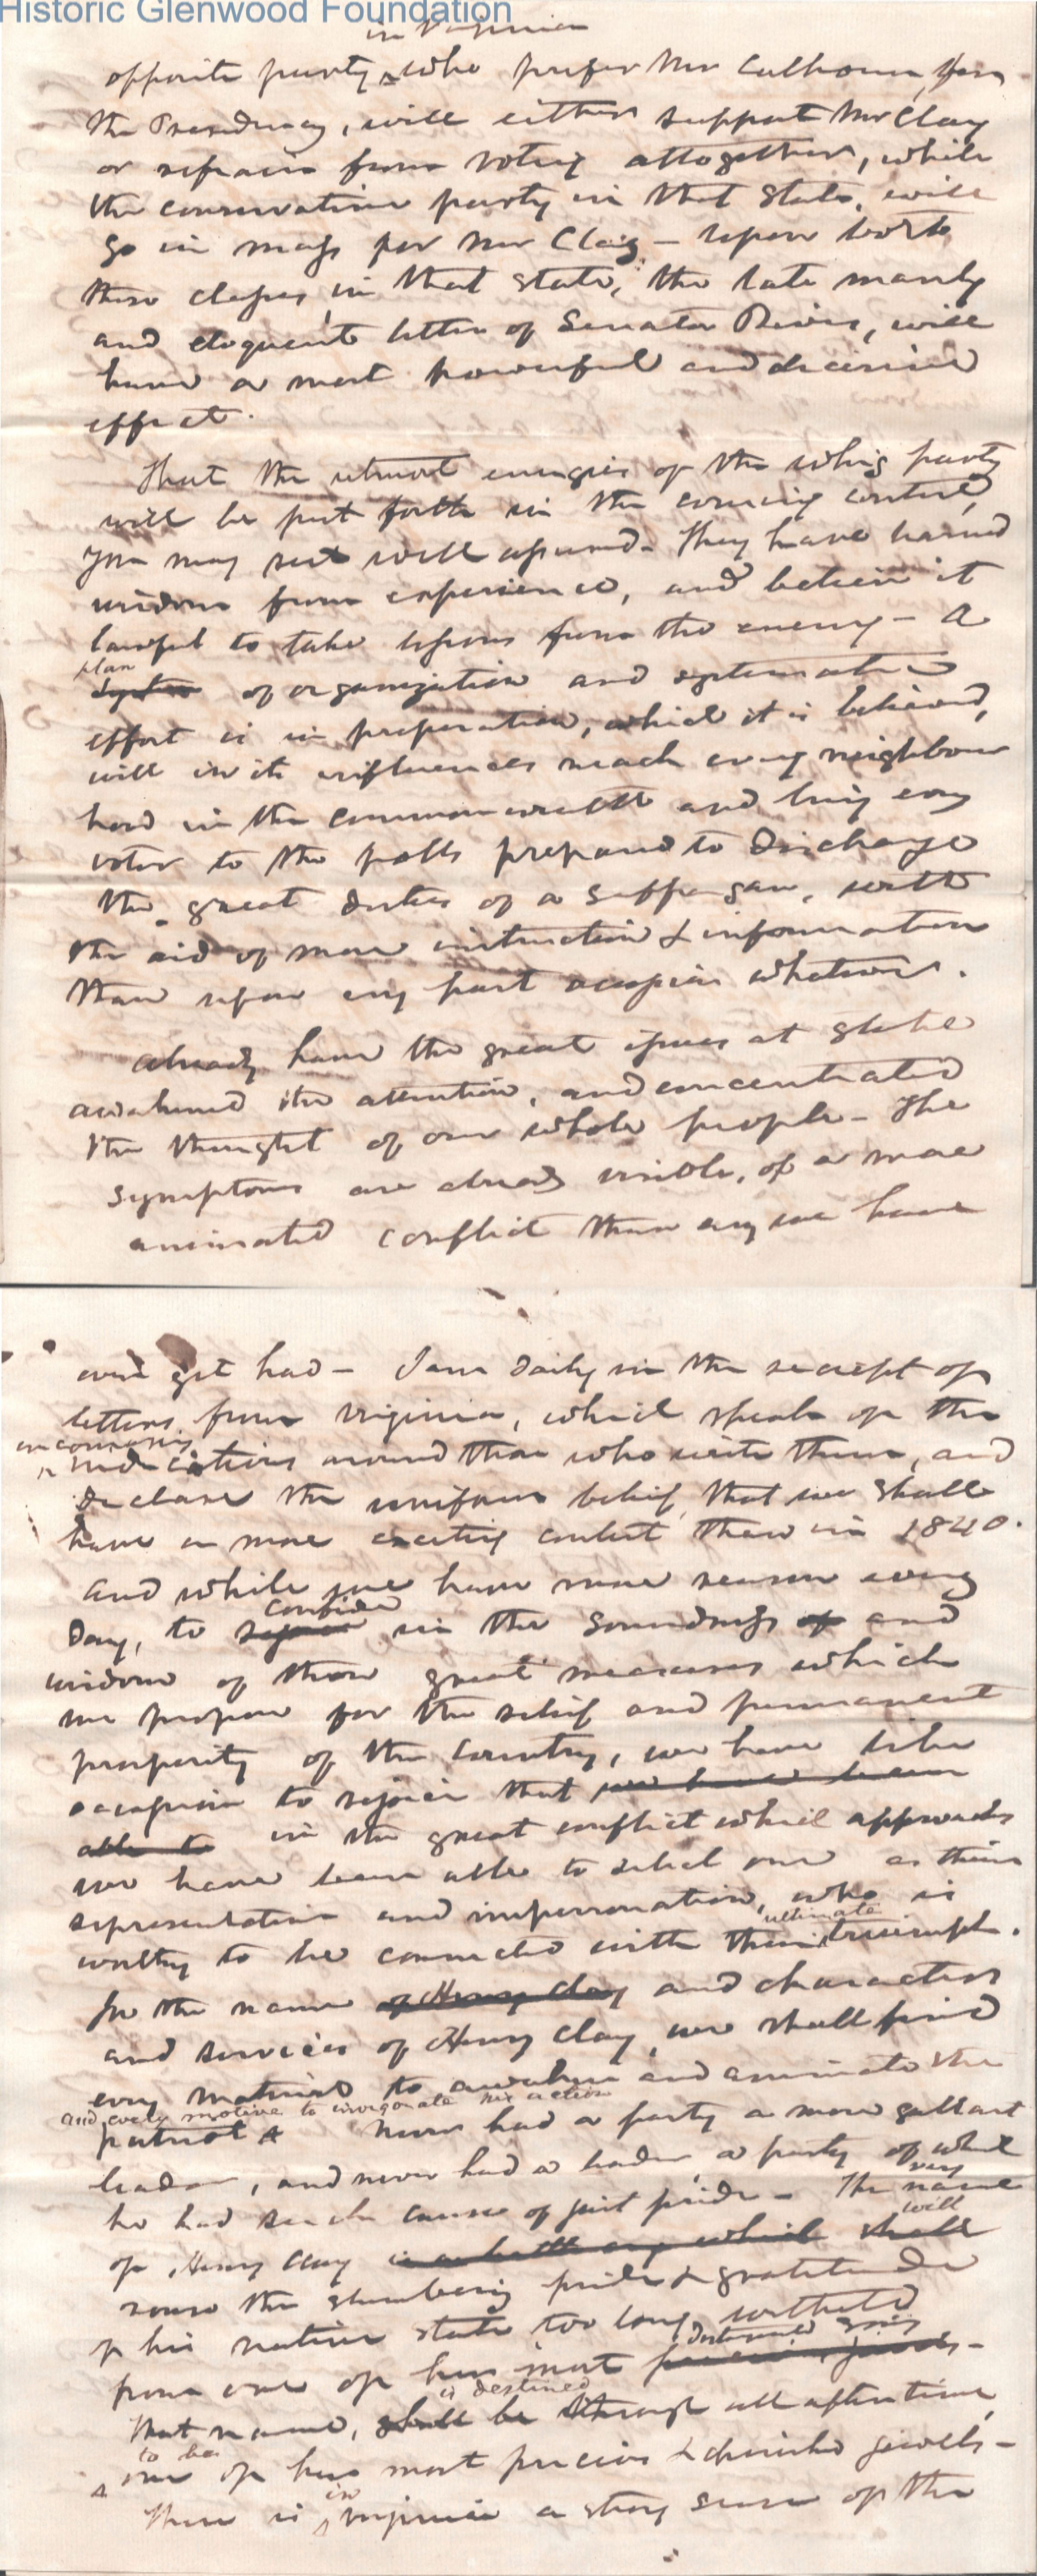 Historic Glenwood Foundation
in Virginia
opposite party, who prefer Mr Calhoun, for
the Presidency, will either support Mr Clay
or refrain from voting altogether, while
the conservative party in that State, will
go in mass for Mr Clay – Upon both
these classes, in that state, the late manly
and eloquent letter of Senator Rives, will
have a most powerful and decisive
effect.
That the utmost energies of the whig party
will be put forth in the coming contest,
you may rest well assured – They have learned
wisdom from experience, and believe it
lawful to take lessons from the enemy – A
plan
system of organization and systematic
effort is in preparation, which it is believed,
will in its influences reach every neighbour
hood in the commonwealth and bring every
voter to the polls prepared to discharge
the great duties of a suffragan, with
the aid of more instruction & information
than upon any past occasion whatever.
Already have the great issues at stake
awakened the attention, and concentrated
the thought of our whole people – The
symptoms are already visible, of a more
animated conflict than any we have
ever yet had – I am daily in the receipt of
letters from Virginia, which speak of the
encouraging
indications around those who write them, and
declare the uniform belief, that we shall
have a more exciting contest than in 1840.
And while we have more reason every
confide
day, to in the soundness of and
wisdom of those great measures which
we propose for the relief and permanent
prosperity of the Country, we have like
occasion to rejoice that we have been
able to in the great conflict which approaches
we have been able to select one as their
representative and impersonation, who is
ultimate
worthy to be connected with their triumph.
In the name of Henry Clay and character
and services of Henry Clay, we shall find
every material to awaken and animate the
and every motive to invigorate his action
patriot Never had a party a more gallant
leader, and never had a leader a party of which
very
he had such cause of just pride – The name
will
of Henry Clay is a battle cry which shall
rouse the slumbering pride & gratitude
of his native state too long withheld
distinguished sons
from one of her most precious jewels –
is destined
That name, shall be through all after time,
to be
one of her most precious & cherished jewels –
in
There is Virginia a strong sense of the